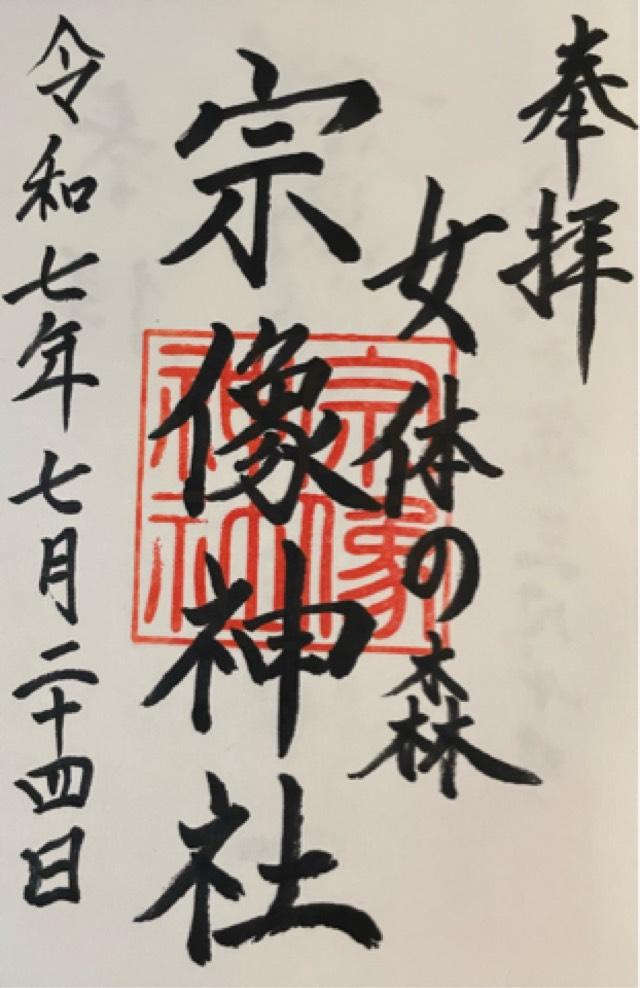 奉拝
女体の森
宗像神社
宗像
神社
令和七年七月二十四日